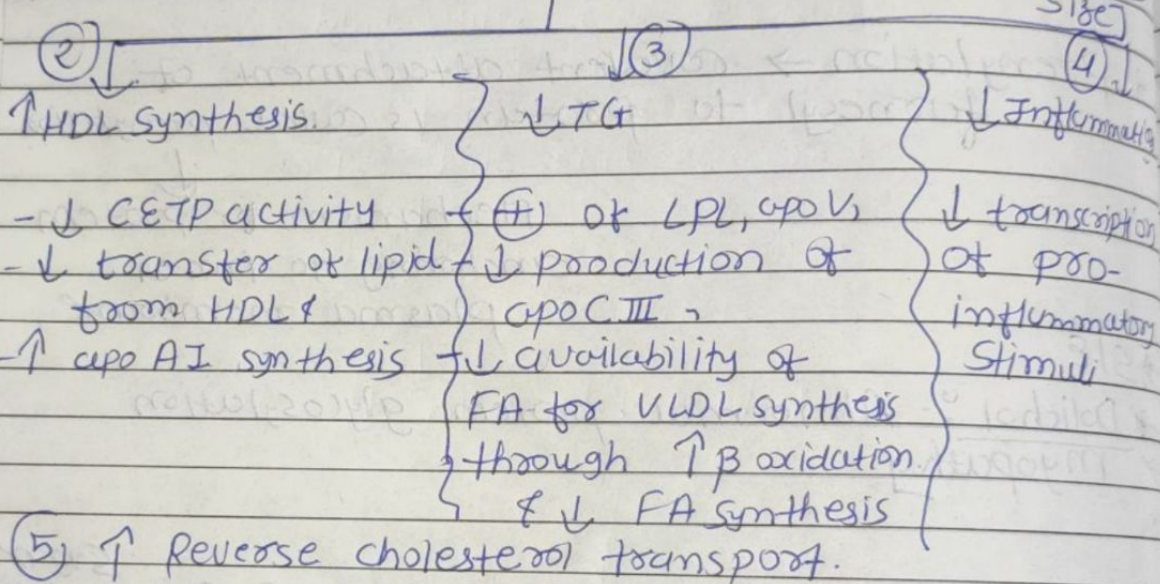 Size]
② ↓
↑HDL synthesis.
- ↓ CETP activity
- ↓ transfer of lipid
from HDL &
- ↑ apo AI synthesis
↓ ③
↓ TG
- ⊕ of LPL, apo V,
- ↓ production of
apo C III,
- ↓ availability of
FA for VLDL synthesis
through ↑ β oxidation
& ↓ FA synthesis
④ ↓
↓ Inflammatio
↓ transcription
of pro-
inflammatory
Stimuli
⑤ ↑ Reverse cholesterol transport.